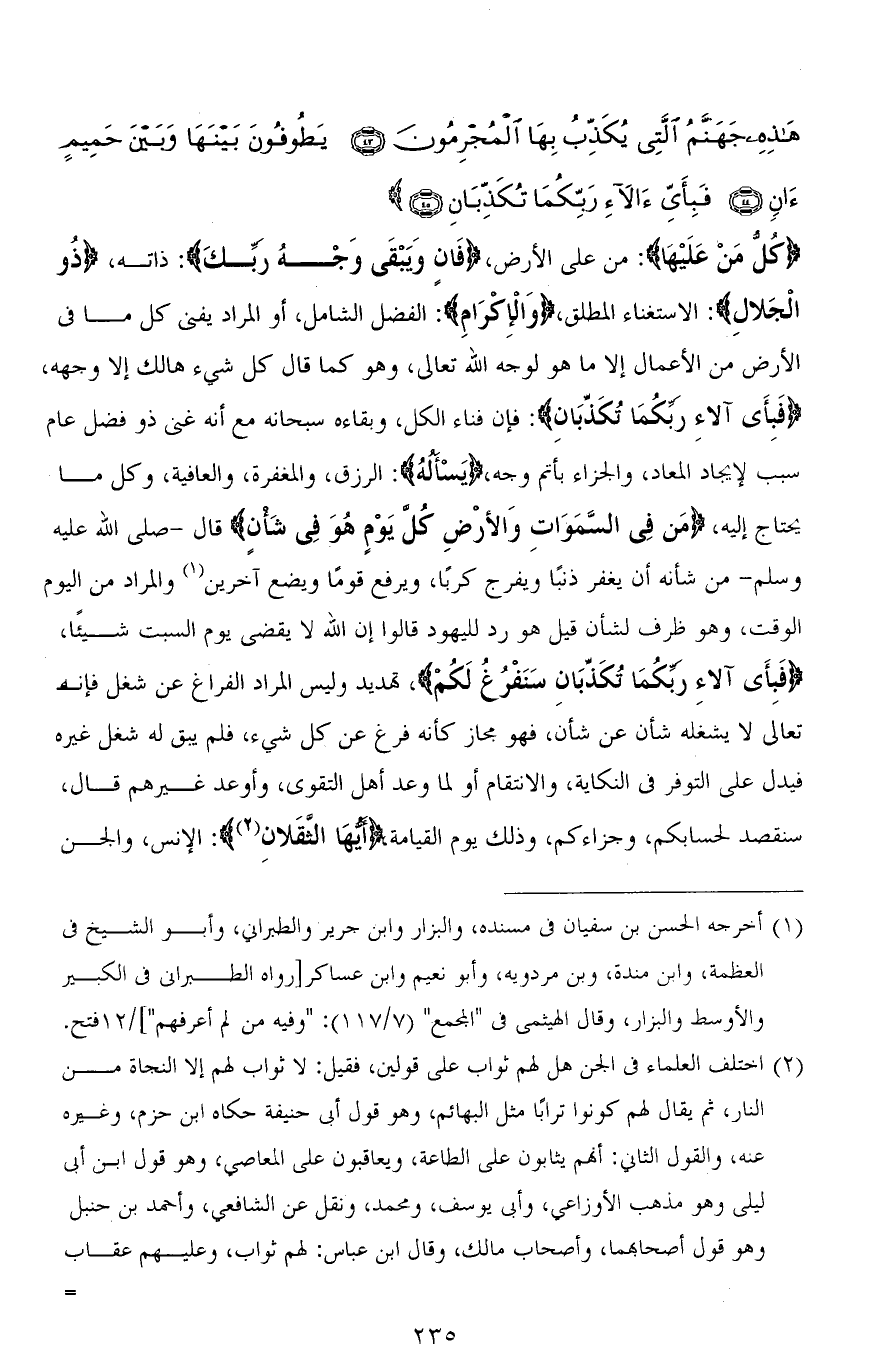 هَٰذِهِۦ جَهَنَّمُ ٱلَّتِى يُكَذِّبُ بِهَا ٱلْمُجْرِمُونَ ﴿٤٣﴾ يَطُوفُونَ بَيْنَهَا وَبَيْنَ حَمِيمٍ
ءَانٍ ﴿٤٤﴾ فَبِأَىِّ ءَالَآءِ رَبِّكُمَا تُكَذِّبَانِ ﴿٤٥﴾ ﴾
﴿كُلُّ مَنْ عَلَيْهَا﴾: من على الأرض، ﴿فَانٍ وَيَبْقَى وَجْـــهُ رَبِّـــكَ﴾: ذاتـــه، ﴿ذُو
الْجَلالِ﴾: الاستغناء المطلق، ﴿وَالْإِكْرَامِ﴾: الفضل الشامل، أو المراد يفنى كل مـــا فى
الأرض من الأعمال إلا ما هو لوجه الله تعالى، وهو كما قال كل شيء هالك إلا وجهه،
﴿فَبِأَى آلاءِ رَبِّكُمَا تُكَذِّبَانِ﴾: فإن فناء الكل، وبقاءه سبحانه مع أنه غنى ذو فضل عام
سبب لإيجاد المعاد، والجزاء بأتم وجه، ﴿يَسْأَلُهُ﴾: الرزق، والمغفرة، والعافية، وكل مـــا
يحتاج إليه، ﴿مَن فِى السَّمَوَاتِ وَالأَرْضِ كُلَّ يَوْمٍ هُوَ فِى شَأْنٍ﴾ قال -صلى الله عليه
وسلم- من شأنه أن يغفر ذنبًا ويفرج كربًا، ويرفع قومًا ويضع آخرين(١) والمراد من اليوم
الوقت، وهو ظرف لشأن قيل هو رد لليهود قالوا إن الله لا يقضى يوم السبت شـــيئًا،
﴿فَبِأَى آلاءِ رَبِّكُمَا تُكَذِّبَانِ سَنَفْرُغُ لَكُمْ﴾، تهديد وليس المراد الفراغ عن شغل فإنـه
تعالى لا يشغله شأن عن شأن، فهو مجاز كأنه فرغ عن كل شيء، فلم يبق له شغل غيره
فيدل على التوفر فى النكاية، والانتقام أو لما وعد أهل التقوى، وأوعد غـــيرهم قـــال،
سنقصد لحسابكم، وجزاءكم، وذلك يوم القيامة، ﴿أَيُّهَا الثَّقَلانِ(٢)﴾: الإنس، والجـــن
(١) أخرجه الحسن بن سفيان فى مسنده، والبزار وابن جرير والطبراني، وأبـــو الشـــيخ فى
العظمة، وابن مندة، وبن مردويه، وأبو نعيم وابن عساكر[رواه الطـــبرانى فى الكبـــير
والأوسط والبزار، وقال الهيثمى فى "المجمع" (١١٧/٧): "وفيه من لم أعرفهم"]/١٢فتح.
(٢) اختلف العلماء فى الجن هل لهم ثواب على قولين، فقيل: لا ثواب لهم إلا النجاة مـــن
النار، ثم يقال لهم كونوا ترابًا مثل البهائم، وهو قول أبى حنيفة حكاه ابن حزم، وغـيره
عنه، والقول الثاني: أنهم يثابون على الطاعة، ويعاقبون على المعاصي، وهو قول ابـن أبى
ليلى وهو مذهب الأوزاعي، وأبى يوسف، ومحمد، ونقل عن الشافعي، وأحمد بن حنبل
وهو قول أصحابهما، وأصحاب مالك، وقال ابن عباس: لهم ثواب، وعليـــهم عقـــاب
=
٢٣٥